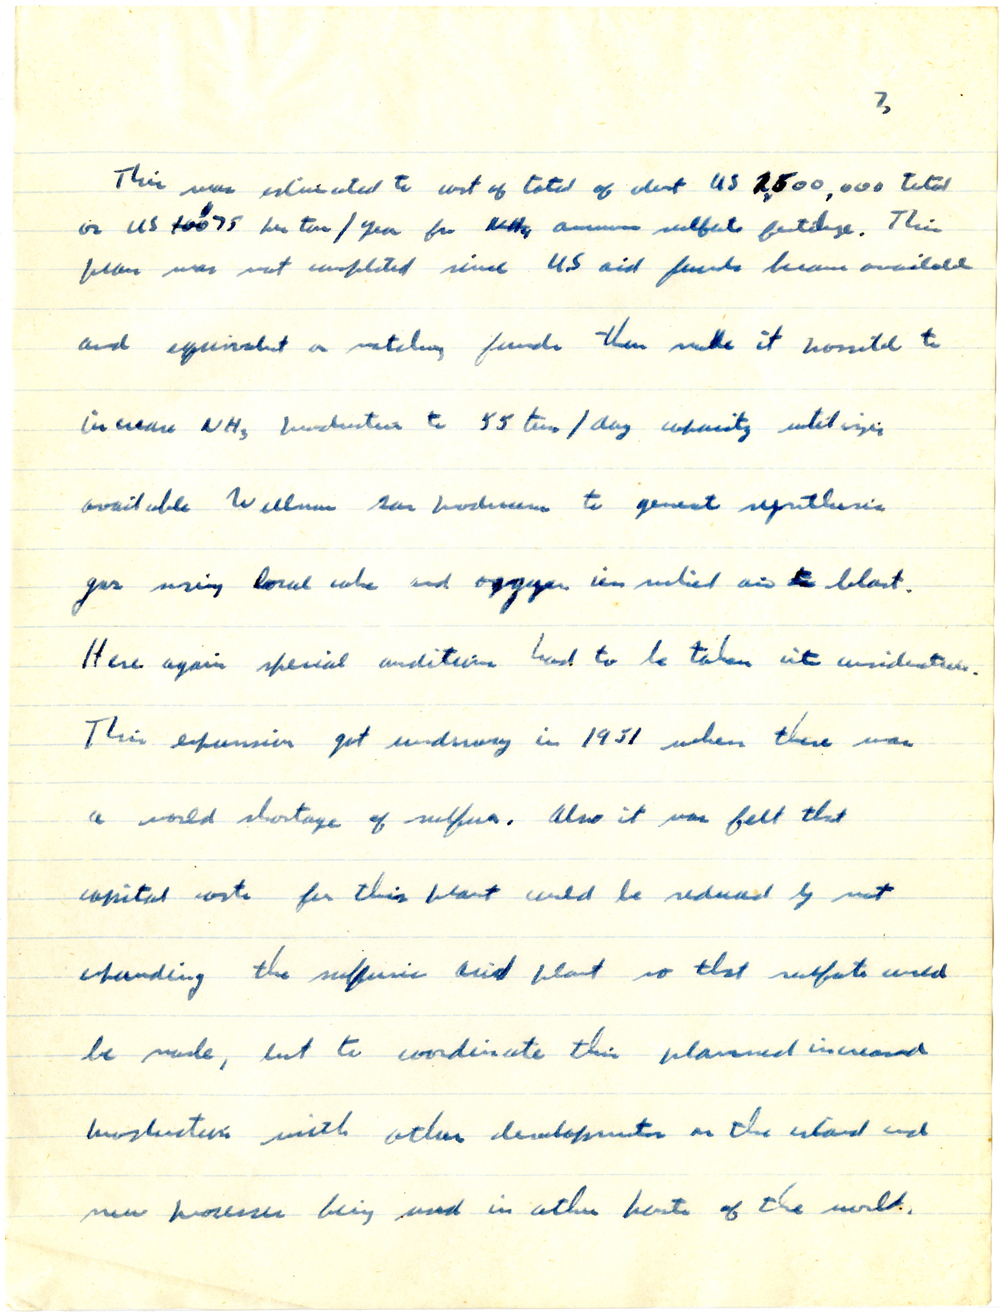 3
This was estimated to cost of total of about US 2,500,000 total
or US $75 per ton/year for ammon sulfate fertilizer. This
plan was not completed since US aid funds became available
and equivalent or matching funds then made it possible to
increase NH3 production to 55 tons/day capacity utilizing
available Wellman gas producers to generate synthesis
gas using local coke and oxygen enriched air blast.
Here again special conditions had to be taken into consideration.
This expansion got underway in 1951 when there was
a world shortage of sulfur. Also it was felt that
capital costs for this plant could be reduced by not
expanding the sulfuric acid plant so that sulfate could
be made, but to coordinate this planned increased
production with other developments on the island and
new processes being used in other parts of the world.